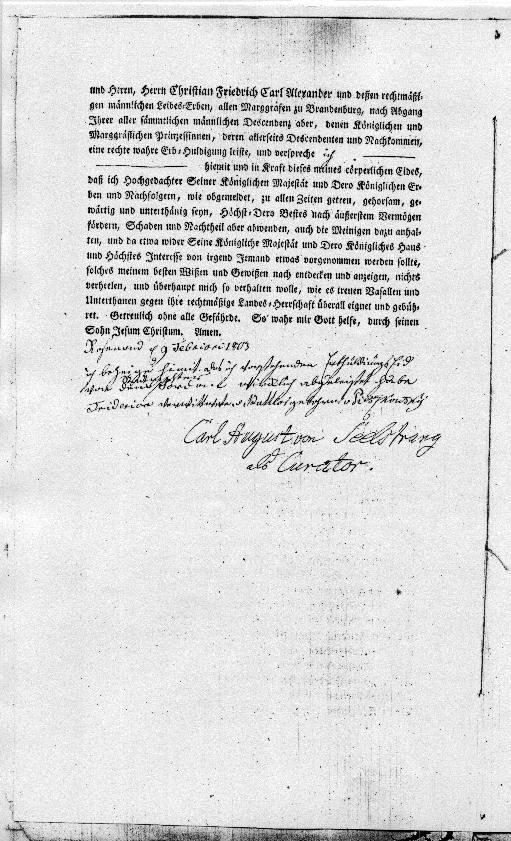 und Herrn, Herrn Christian Friedrich Carl Alexander und dessen rechtmäßi-
gen männlichen Leibes-Erben, allen Marggrafen zu Brandenburg, nach Abgang
Ihrer aller sämmtlichen männlichen Descendenz aber, denen Königlichen und
Marggräflichen Prinzessinnen, deren allerseits Descendenten und Nachkommen,
eine rechte wahre Erb-Huldigung leiste, und verspreche ich
hiemit und in Kraft dieses meines cörperlichen Eides,
daß ich Hochgedachter Seiner Königlichen Majestät und Dero Königlichen Er-
ben und Nachfolgern, wie obgemeldet, zu allen Zeiten getreu, gehorsam, ge-
wärtig und unterthänig seyn, Höchst-Dero Bestes nach äußerstem Vermögen
fördern, Schaden und Nachtheil aber abwenden, auch die Meinigen dazu anhal-
ten, und da etwa wider Seine Königliche Majestät und Dero Königliches Haus
und Höchstes Interesse von irgend Jemand etwas vorgenommen werden sollte,
solches meinem besten Wißen und Gewißen nach entdecken und anzeigen, nichts
verhelen, und überhaupt mich so verhalten wolle, wie es treuen Vasallen und
Unterthanen gegen ihre rechtmäßige Landes-Herrschaft überall eignet und gebüh-
ret. Getreulich ohne alle Gefährde. So wahr mir Gott helfe, durch seinen
Sohn Jesum Christum. Amen.
9 Februari 1803
ich bezeige hiemit das ich vorstehenden Erbhuldigungs Eid
würcklich abgeleistet habe
Friderica verwittwete
Carl August von Seelstrang
als Curator.